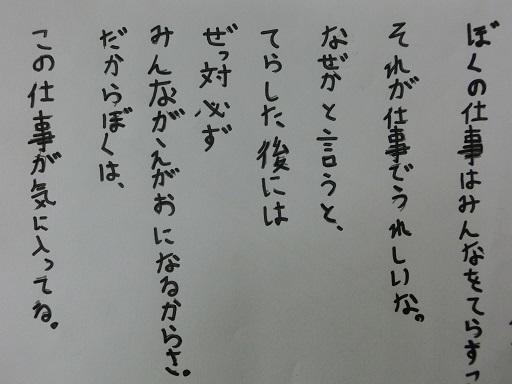 ぼくの仕事はみんなをてらすっ
それが仕事でうれしいな。
なぜかと言うと、
てらした後には
ぜっ対必ず
みんながえがおになるからさ。
だからぼくは、
この仕事が気に入ってる。